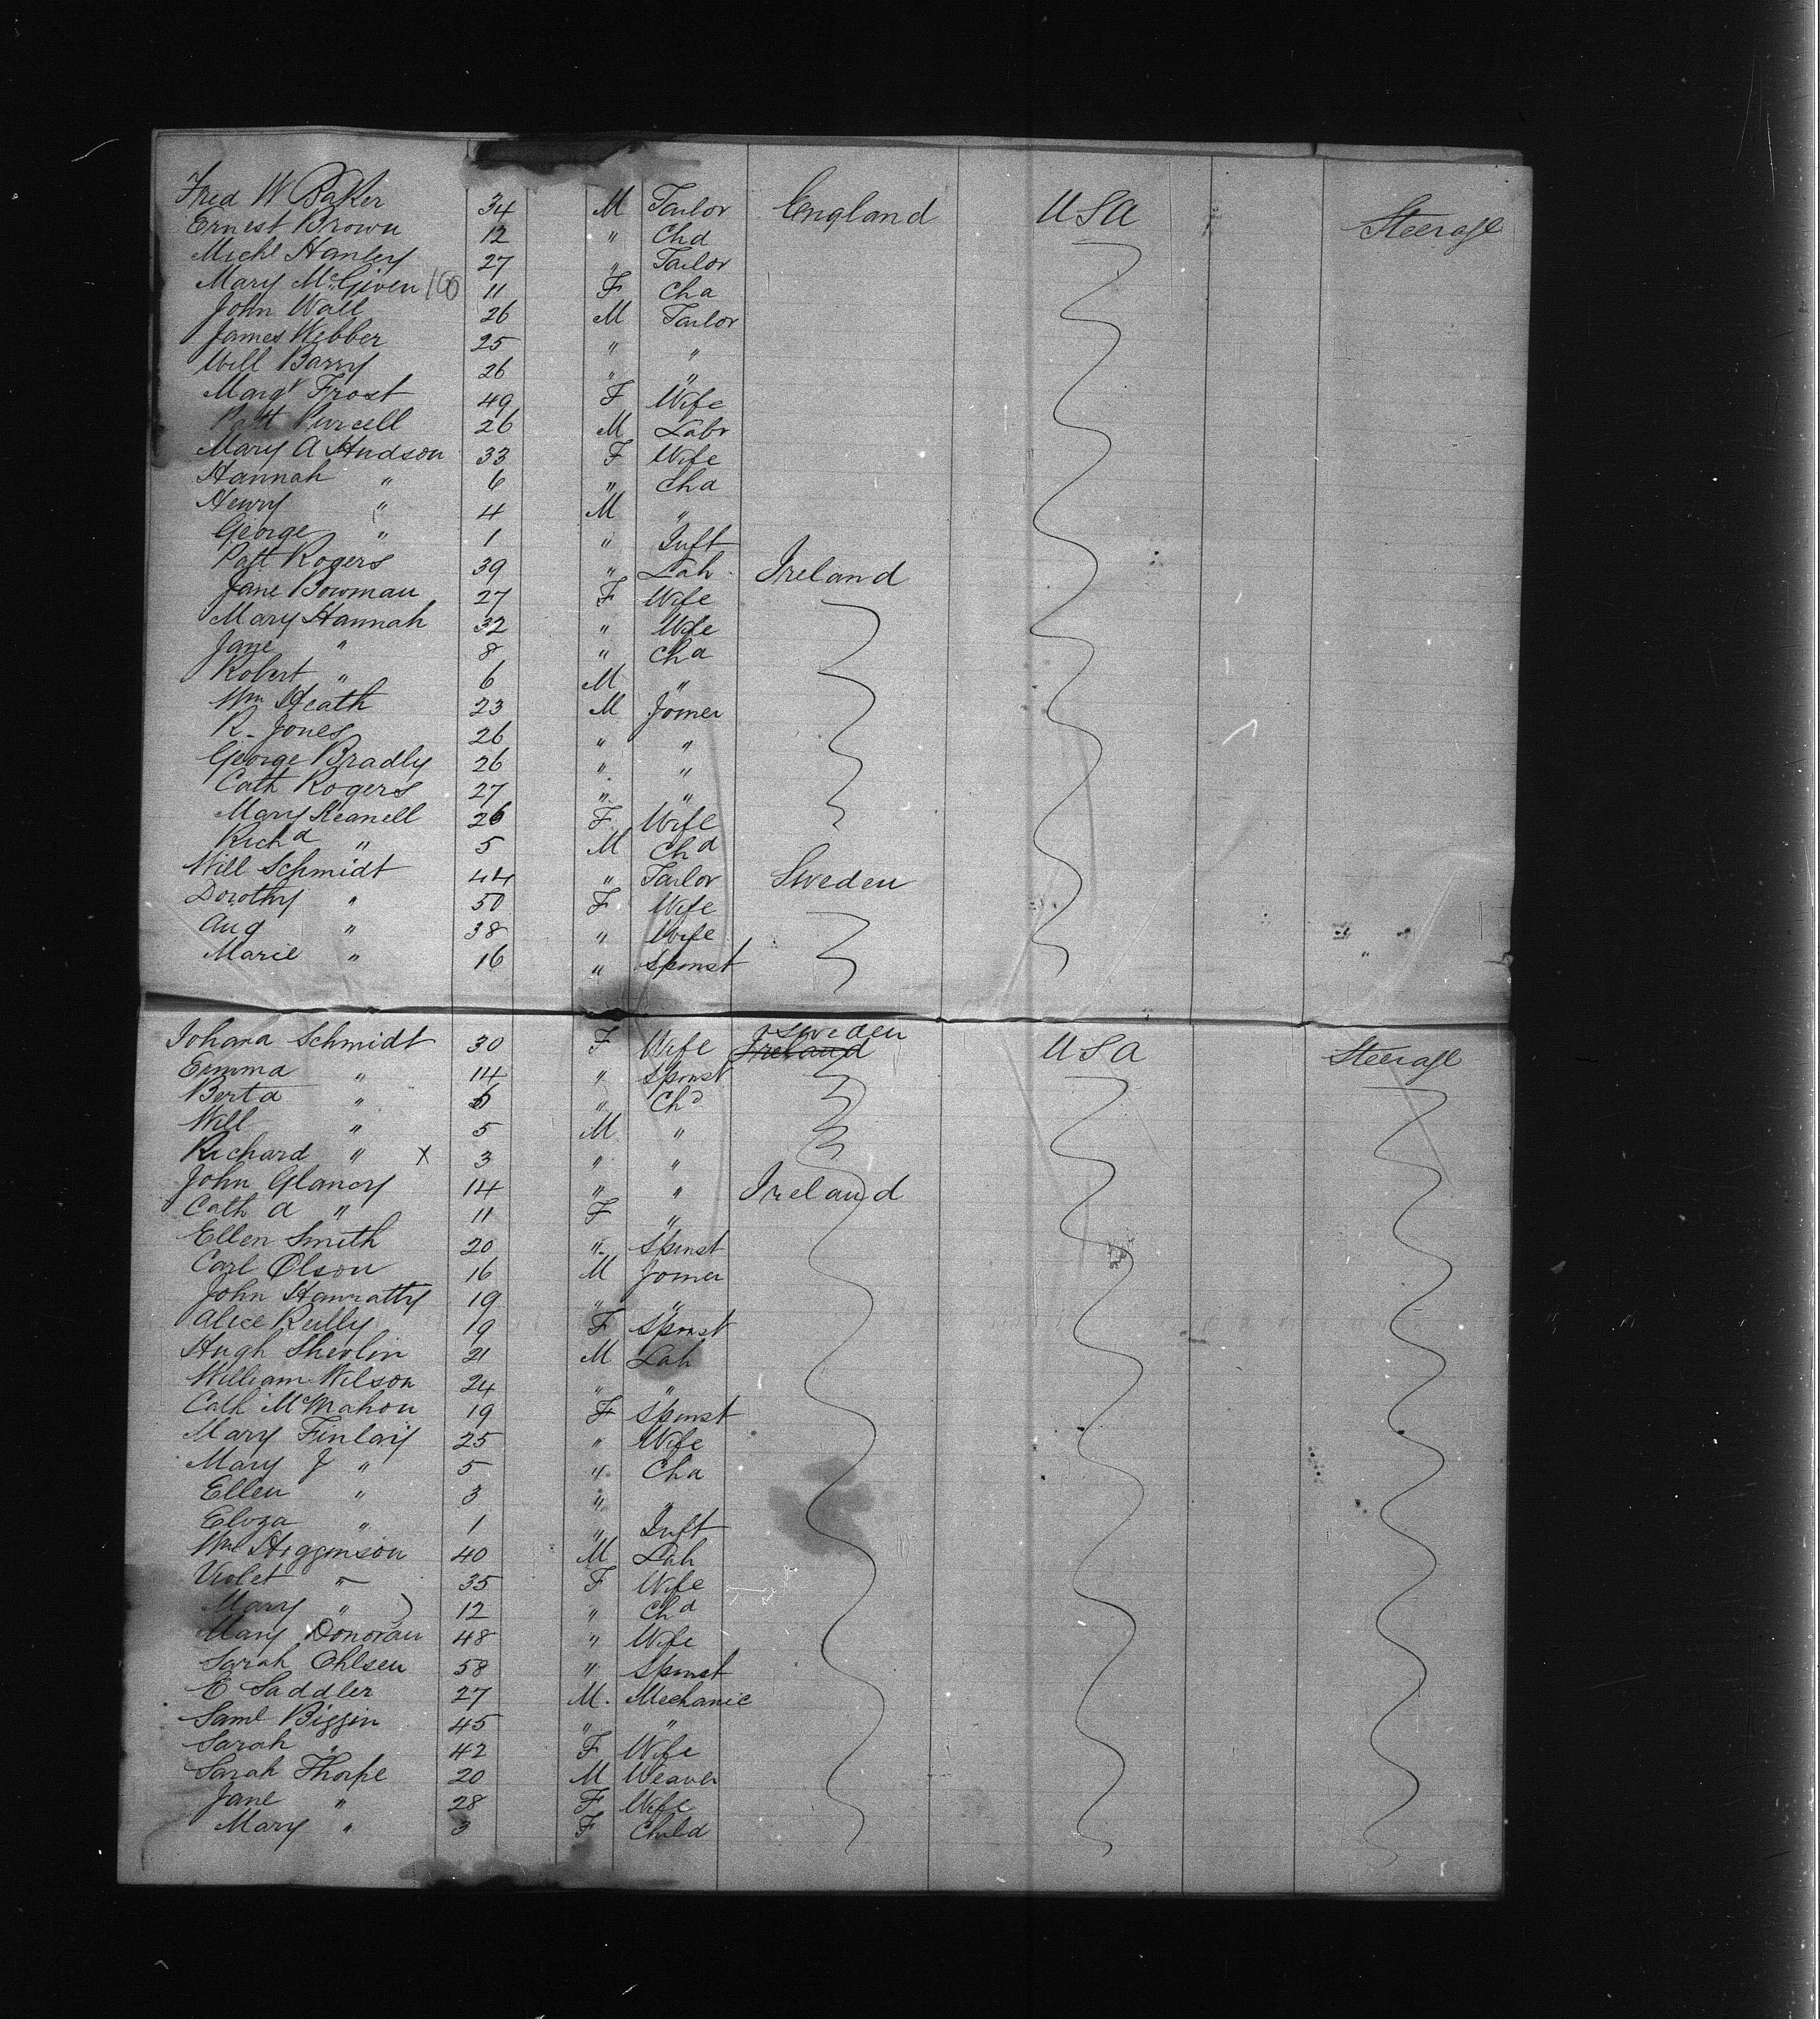 Fred W Baker 34 M Tailor England USA Steerage
Ernest Brown 12 " Chd
Michl Hanley 27 " Tailor
Mary McGiven 100 11 F Chd
John Wall 26 M Tailor
James Webber 25 " "
Will Barry 26 " "
Margt Frost 49 F Wife
Patt Purcell 26 M Labr
Mary A Hudson 33 F Wife
Hannah " 6 " Chd
Henry " 4 M "
George " 1 " Inft
Patt Rogers 39 " Lab Ireland
Jane Bowman 27 F Wife
Mary Hannah 32 " Wife
Jane " 8 " Chd
Robert " 6 M "
Wm Heath 23 M Joiner
R. Jones 26 " "
George Bradly 26 " "
Cath Rogers 27 " "
Mary 26 F Wife
Richd " 5 M Chd
Will Schmidt 44 " Tailor Sweden
Dorothy " 50 F Wife
Aug " 38 " Wife
Marie " 16 " Spinst "
Johana Schmidt 30 F Wife Ireland Sweden USA Steerage
Emma " 14 " Spinst
Berta " " Chd
Will " 5 M "
Richard " X 3 " "
John Glancy 14 " " Ireland
Cath A " 11 F "
Ellen Smith 20 " Spinst
Carl Olson 16 M Joiner
John Hanratty 19 " "
Alice Reilly 19 F Spinst
Hugh Shevlin 21 M Lab
William Wilson 24 " "
Cath McMahon 19 F Spinst
Mary Finlay 25 " Wife
Mary J " 5 " Chd
Ellen " 3 " "
Eliza " 1 " Inft
Wm Higginson 40 M Lab
Violet " 35 F Wife
Mary " 12 " Chd
Mary Donovan 48 " Wife
Sarah Ohlsen 58 " Spinst
E Saddler 27 M. Mechanic
Saml Biggin 45 " "
Sarah " 42 F Wife
Sarah Thorpe 20 M Weaver
Jane " 28 F Wife
Mary " 3 F Child